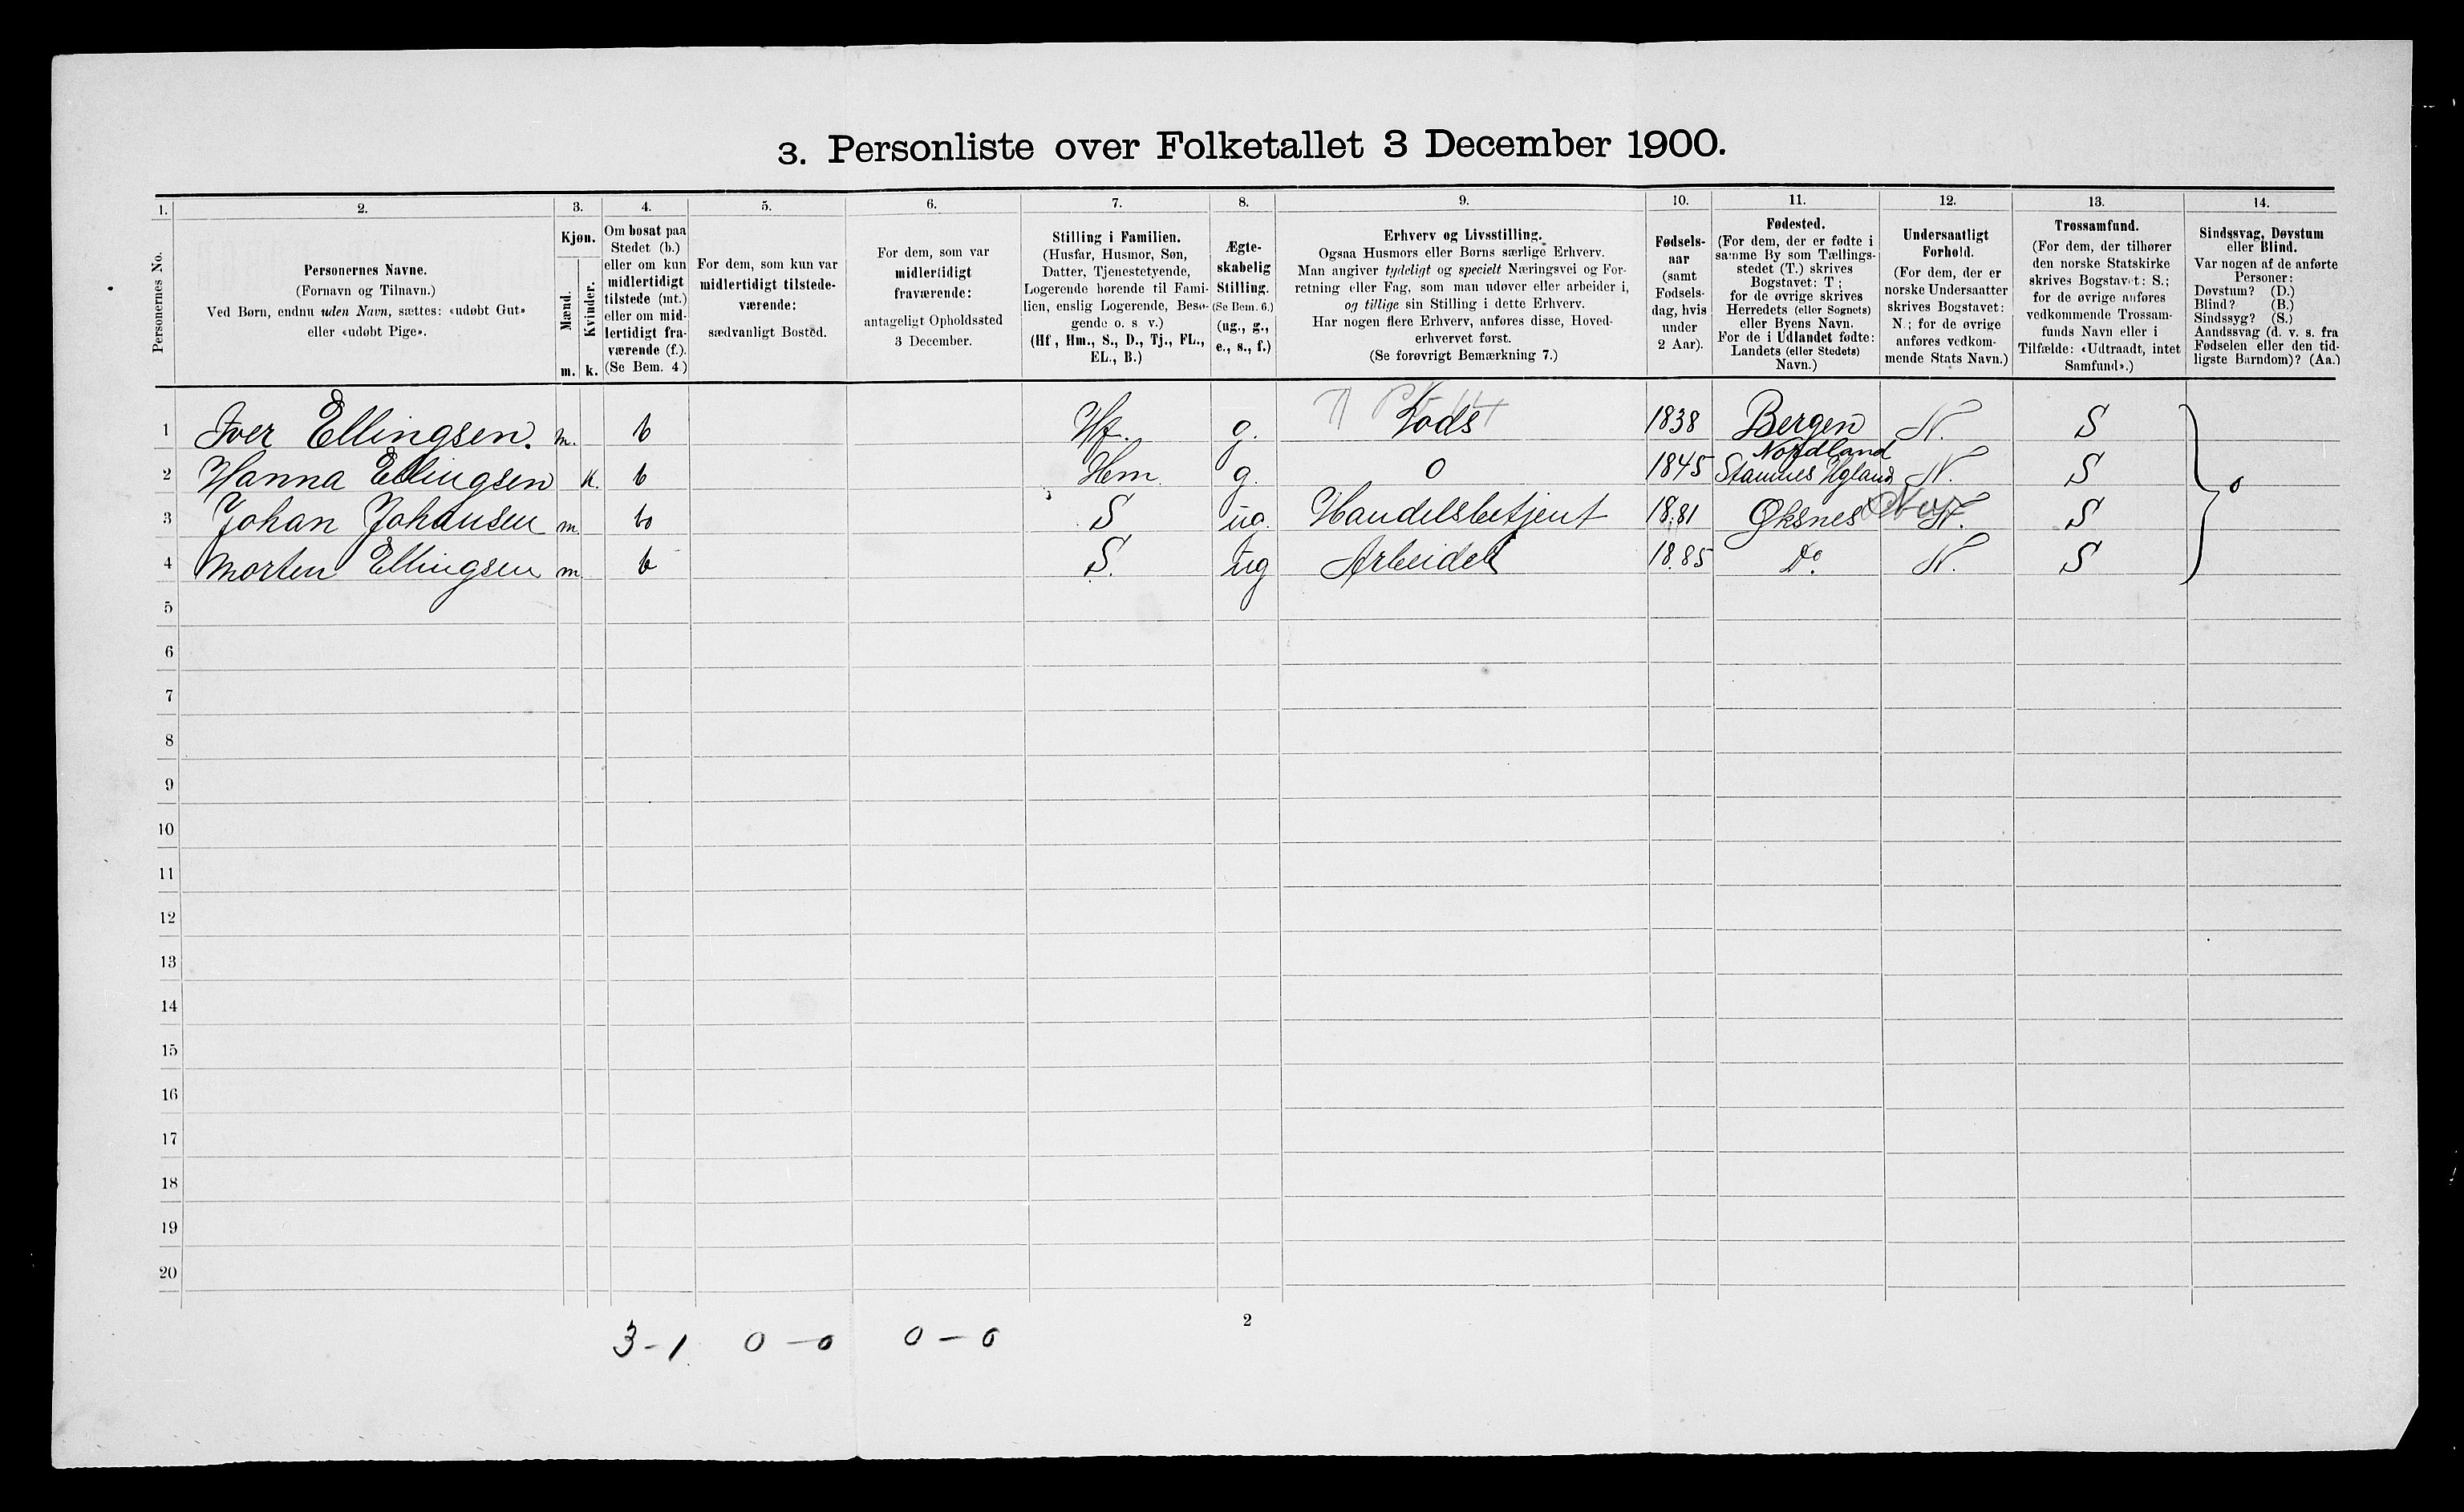 3. Personliste over Folketallet 3 December 1900.
1. 2. 3. 4. 5. 6. 7. 8. 9. 10. 11. 12. 13. 14.
Personernes No.
Personernes Navne.
(Fornavn og Tilnavn.)
Ved Børn, endnu uden Navn, sættes: «udøbt Gut»
eller «udøbt Pige».
Kjøn.
Mænd.
Kvinder.
m. k.
Om bosat paa
Stedet (b.)
eller om kun
midlertidigt
tilstede (mt.)
eller om mid-
lertidigt fra-
værende (f.).
(Se Bem. 4.)
For dem, som kun var
midlertidigt tilstede-
værende:
sædvanligt Bosted.
For dem, som var
midlertidigt
fraværende:
antageligt Opholdssted
3 December.
Stilling i Familien.
(Husfar, Husmor, Søn,
Datter, Tjenestetyende,
Logerende hørende til Fami-
lien, enslig Logerende, Besø-
gende o. s v.)
(Hf, Hm., S., D., Tj., FL.,
EL., B.)
Ægte-
skabelig
Stilling.
(Se Bem. 6.)
(ug., g.,
e., s., f.)
Erhverv og Livsstilling.
Ogsaa Husmors eller Børns særlige Erhverv.
Man angiver tydeligt og specielt Næringsvei og For-
retning eller Fag, som man udøver eller arbeider i,
og tillige sin Stilling i dette Erhverv.
Har nogen flere Erhverv, anføres disse, Hoved-
erhvervet først.
(Se forøvrigt Bemærkning 7.)
Fødsels-
aar
(samt
Fødsels-
dag, hvis
under
2 Aar).
Fødested.
(For dem, der er fødte i
samme By som Tællings-
stedet (T.) skrives
Bogstavet: T;
for de øvrige skrives
Herredets (eller Sognets)
eller Byens Navn.
For de i Udlandet fødte:
Landets (eller Stedets)
Navn.)
Undersaatligt
Forhold.
(For dem, der er
norske Undersaatter
skrives Bogstavet:
N.; for de øvrige
anføres vedkom-
mende Stats Navn.)
Trossamfund.
(For dem, der tilhører
den norske Statskirke
skrives Bogstavet: S.;
for de øvrige anføres
vedkommende Trossam-
funds Navn eller i
Tilfælde: «Udtraadt, intet
Samfund».)
Sindssvag, Døvstum
eller Blind.
Var nogen af de anførte
Personer:
Døvstum? (D.)
Blind? (B.)
Sindssyg? (S.)
Aandssvag (d. v. s. fra
Fødselen eller den tid-
ligste Barndom)? (Aa.)
1 Iver Ellingsen. m. b Hf. g. Lods 1838 Bergen N. S
2 Hanna Ellingsen K. b Hm g. 0 1845 Nordland Stamnes N. S 0
3 Johan Johansen m. b S ug. Handelsbetjent 1881 Øksnes N. S
4 Morten Ellingsen m. b S. ug Arbeider 1885 Do. N. S
5
6
7
8
9
10
11
12
13
14
15
16
17
18
19
20
2
3-1. 0-0 0-0